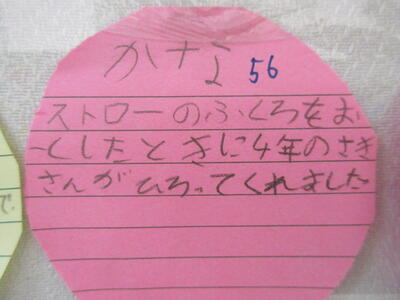 かなよ 56
ストローのふくろをお
としたときに4年のさき
さんがひろってくれました
で